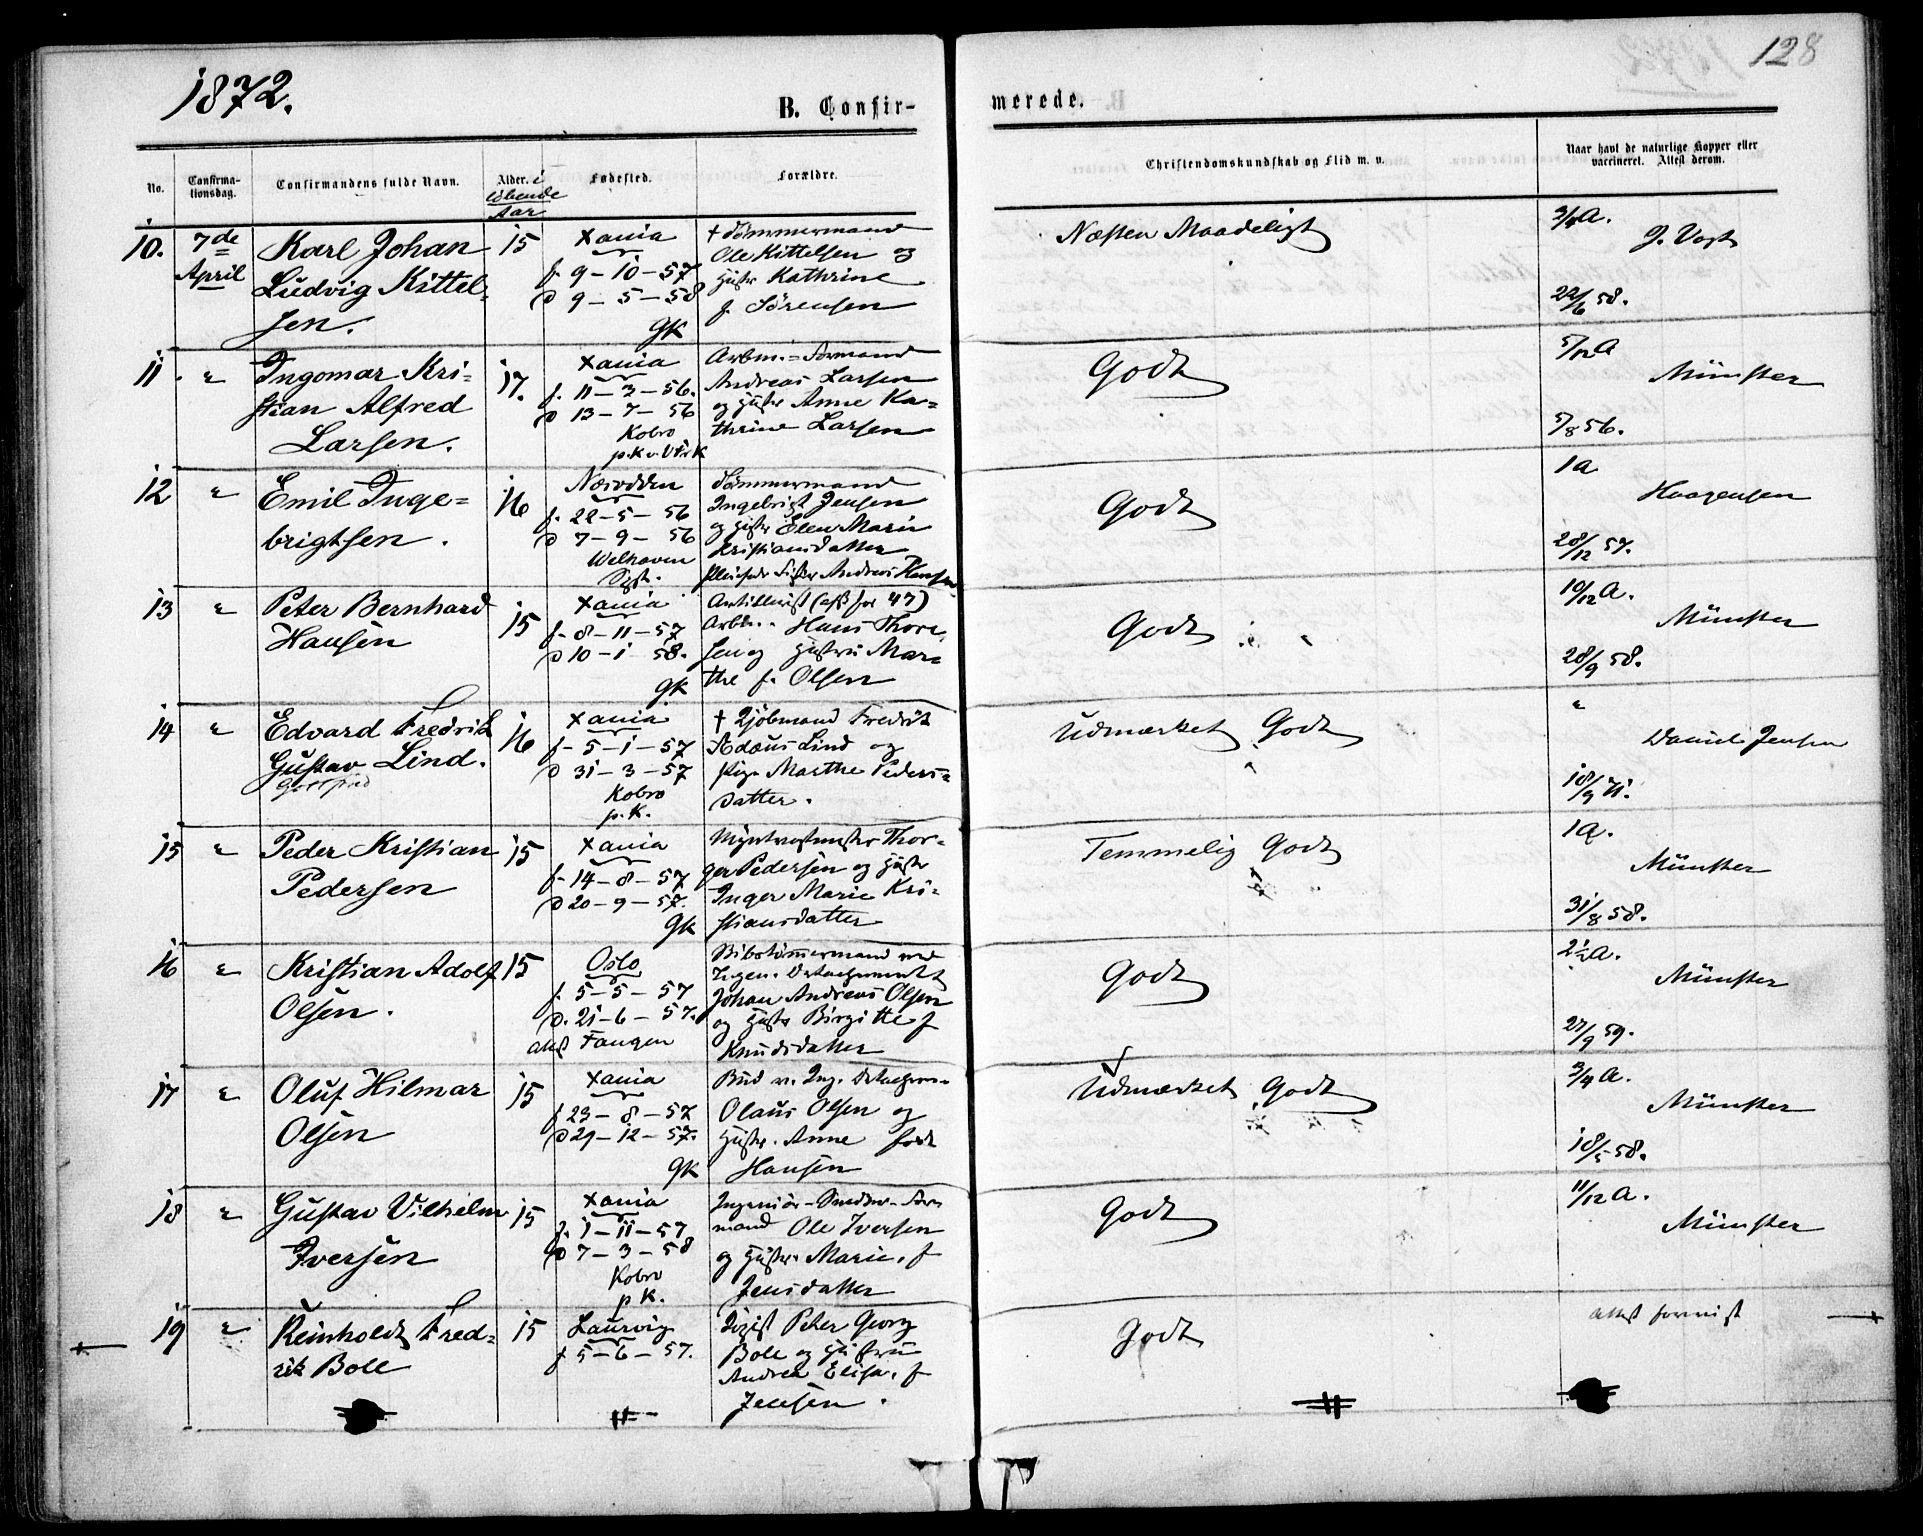 1872.
128
B. Confir-
merede.
No.
Confirma-
tionsdag.
Confirmandens fulde Navn.
Alder. i
løbende
Aar
Fødested.
Forældre.
Christendomskundskab og Flid m. v.
Naar havt de naturlige Kopper eller
vaccineret. Attest derom.
10.
7de
April
Karl Johan
Ludvig Kittel-
sen.
15
Xania
f. 9-10-57
d 9-5-58
GK
† Tømmermand
Ole Kittelsen og
Hustr Kathrine
f. Sørensen
Næsten Maadeligt
3/4 A.
J. Vogt
22/6 58.
11
"
Ingomar Kri-
stian Alfred
Larsen.
17.
Xania
f. 11-2-56.
d 13-7-56
Kobro
Formand
Andreas Larsen
og Hustr Anne Ka-
thrine Larsen
Godt
5/12 A
Münster
5/8 56.
12
"
Emil Inge-
brigtsen.
16
Næsodden
f. 22-5-56
d 7-9-56
Welhaven
Tømmermand
Ingebrigt Jensen
og Hustr Elen Marie
Kristiansdatter
Andreas Hansen
Godt
1 A
Haagensen
28/12 57.
13
"
Peter Bernhard
Hansen
15
Xania
f. 8-11-57
d 10-1-58.
GK
Artillerist
Arbm. Hans Thore
sen og Hustru Mar-
the f. Olsen
Godt
10/12 A.
Münster
28/9 58.
14
"
Edvard Fredrik
Gustav Lind.
Gottfried
16
Xania
f. 5-1-57
d 31-3-57
Kobro
p. K.
Fredrik
Lind og
Pige Marthe Peders-
datter.
Udmærket Godt
"
Daniel Jensen
18/9 71.
15
"
Peder Kristian
Pedersen
15
Xania
f. 14-8-57
d 20-9-57.
GK
Thor-
ger Pedersen og Hustr
Inger Marie Kri-
stiansdatter
Temmelig Godt
1 A.
Münster
31/8 58.
16
"
Kristian Adolf
Olsen.
15
Oslo
f. 5-5-57
d. 21-6-57.
att Fangen
Johan Andreas Olsen
og Hustr Birgitte f
Knudsdatter
Godt
2 1/2 A.
Münster
27/9 59.
17
"
Oluf Hilmar
Olsen
15
Xania
f 23-8-57
d 29-12-57.
GK
Bud v. Ing.
Olaus Olsen og
Hustr. Anne født
Hansen
Udmærket Godt
3/4 A.
Münster
18/5 58.
18
"
Gustav Vilhelm
Iversen
15
Xania
f. 1-11-57
d 7-3-58
Kobro
p K.
mand Ole Iversen
og Hustr. Marie, f
Jensdatter
Godt
11/12 A.
Münster
19
"
Reinholdt Fred-
rik Boll
15
Laurvig
f 5-6-57.
Peter Georg
Boll og Hustru
Andrea Elisa, f
Jensen.
Godt
Attest forevist